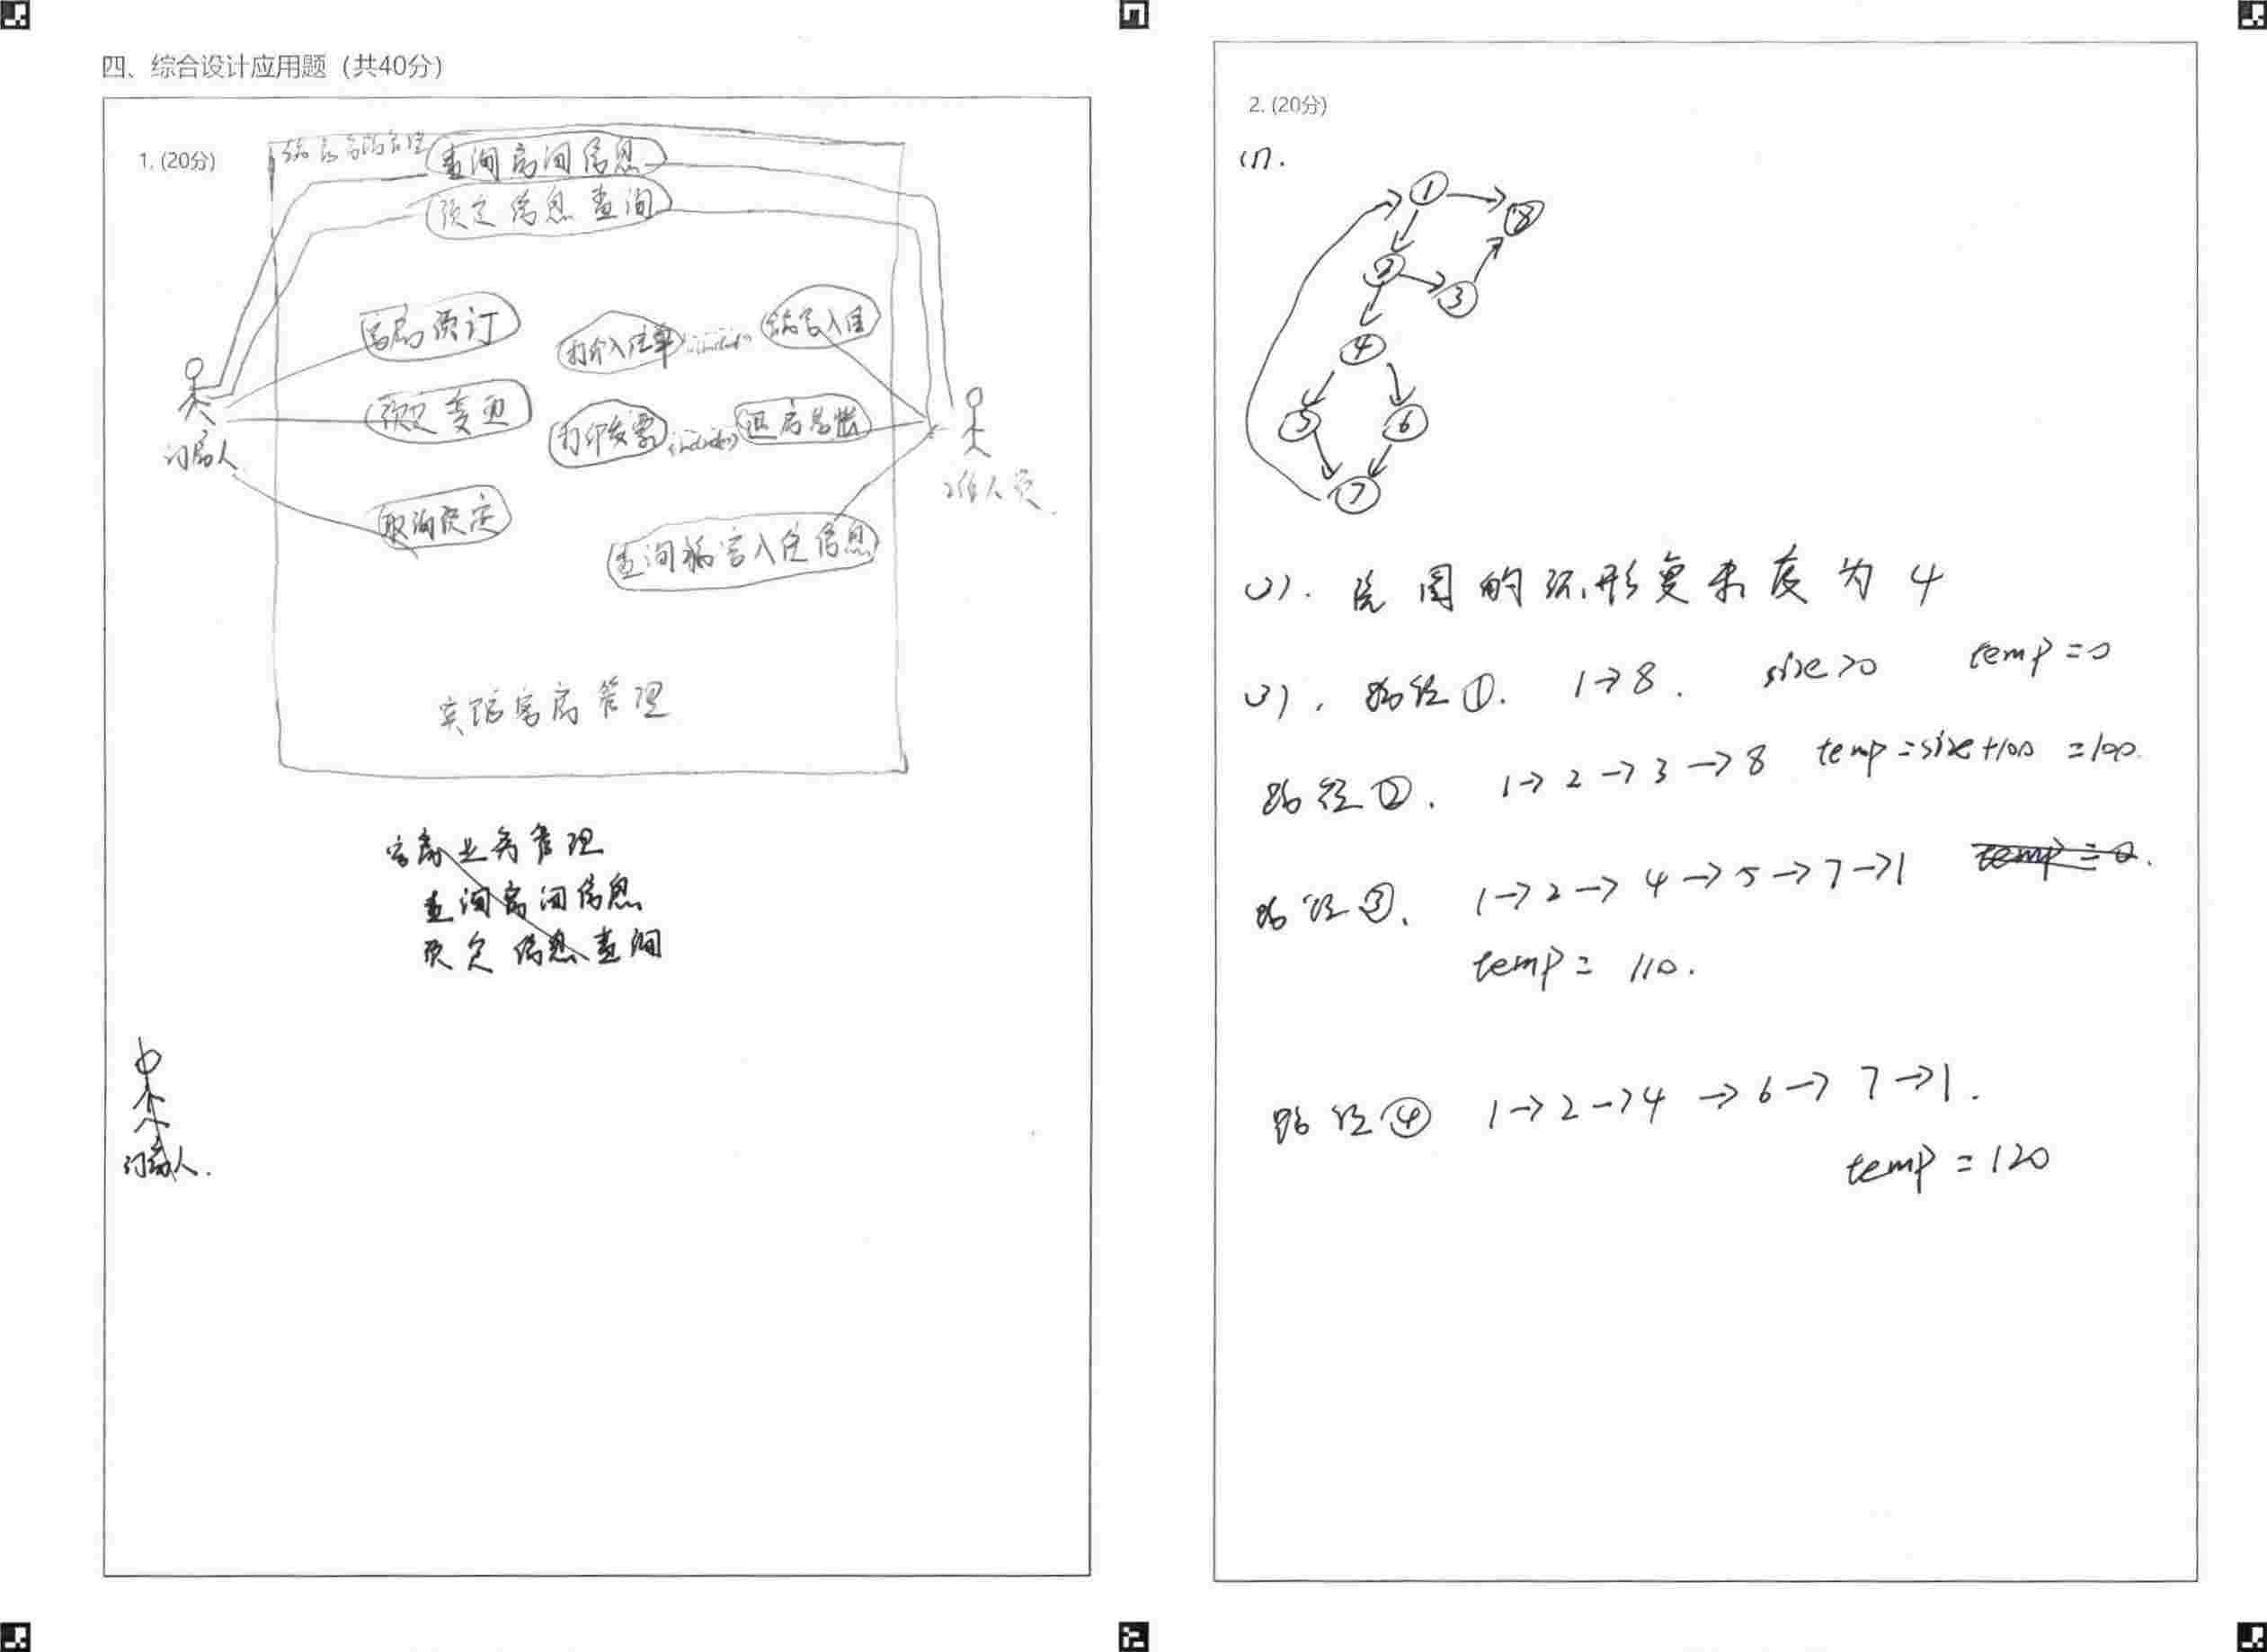 四、综合设计应用题（共40分）
1. (20分)
查询房间信息
预定信息查询
客房预订
打印入住单
<include>
旅客入住
预定变更
打印发票
<include>
退房结账
订房人
工作人员
取消预定
查询旅客入住信息
宾馆客房管理
客房业务管理
查询房间信息
预定信息查询
订房人.
2. (20分)
(1).
1
8
2
3
4
5
6
7
(2). 流图的环形复杂度为 4
(3). 路径①. 1→8. size>0 temp=0
路径②. 1→2→3→8 temp=size+100 =100.
路径③. 1→2→4→5→7→1 temp=0.
temp= 110.
路径④ 1→2→4→6→7→1.
temp=120